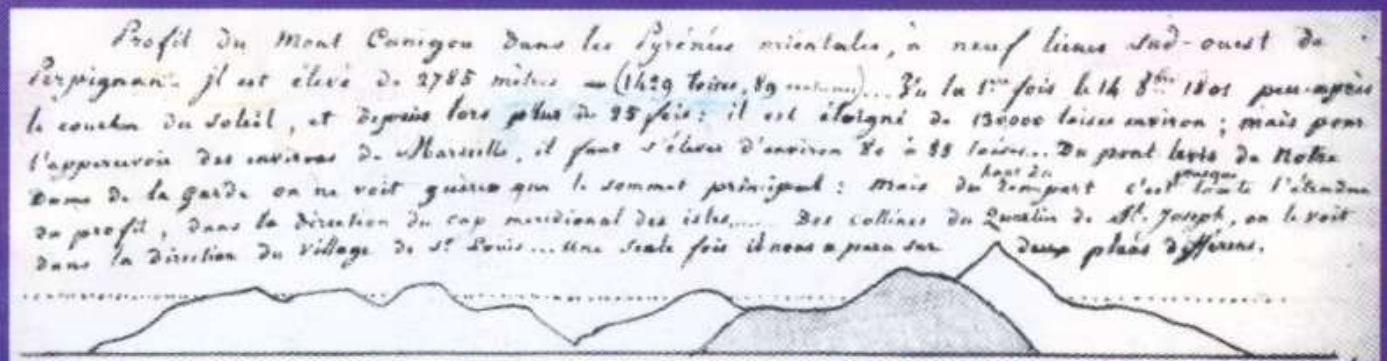 Profil du Mont Canigou dans les Pyrénées orientales, à neuf lieues sud-ouest de
Perpignan. jl est élevé de 2785 mètres = (1429 toises, 89 ... Vu la 1ère fois le 14 8bre 1801 peu-après
le coucher du soleil, et depuis lors plus de 25 fois : il est éloigné de 130000 toises environ ; mais pour
l'appercevoir des environs de Marseille, il faut s'élever d'environ 80 à 85 toises... Du pont levis de Notre
Dame de la Garde on ne voit guères que le sommet principal : mais du haut du rempart c'est presque toute l'étendue
du profil, dans la direction du cap meridional des isles..... Des collines du Quartier de St. Joseph, on le voit
dans la direction du village de St Louis... Une seule fois il nous a paru sur deux plans differens.